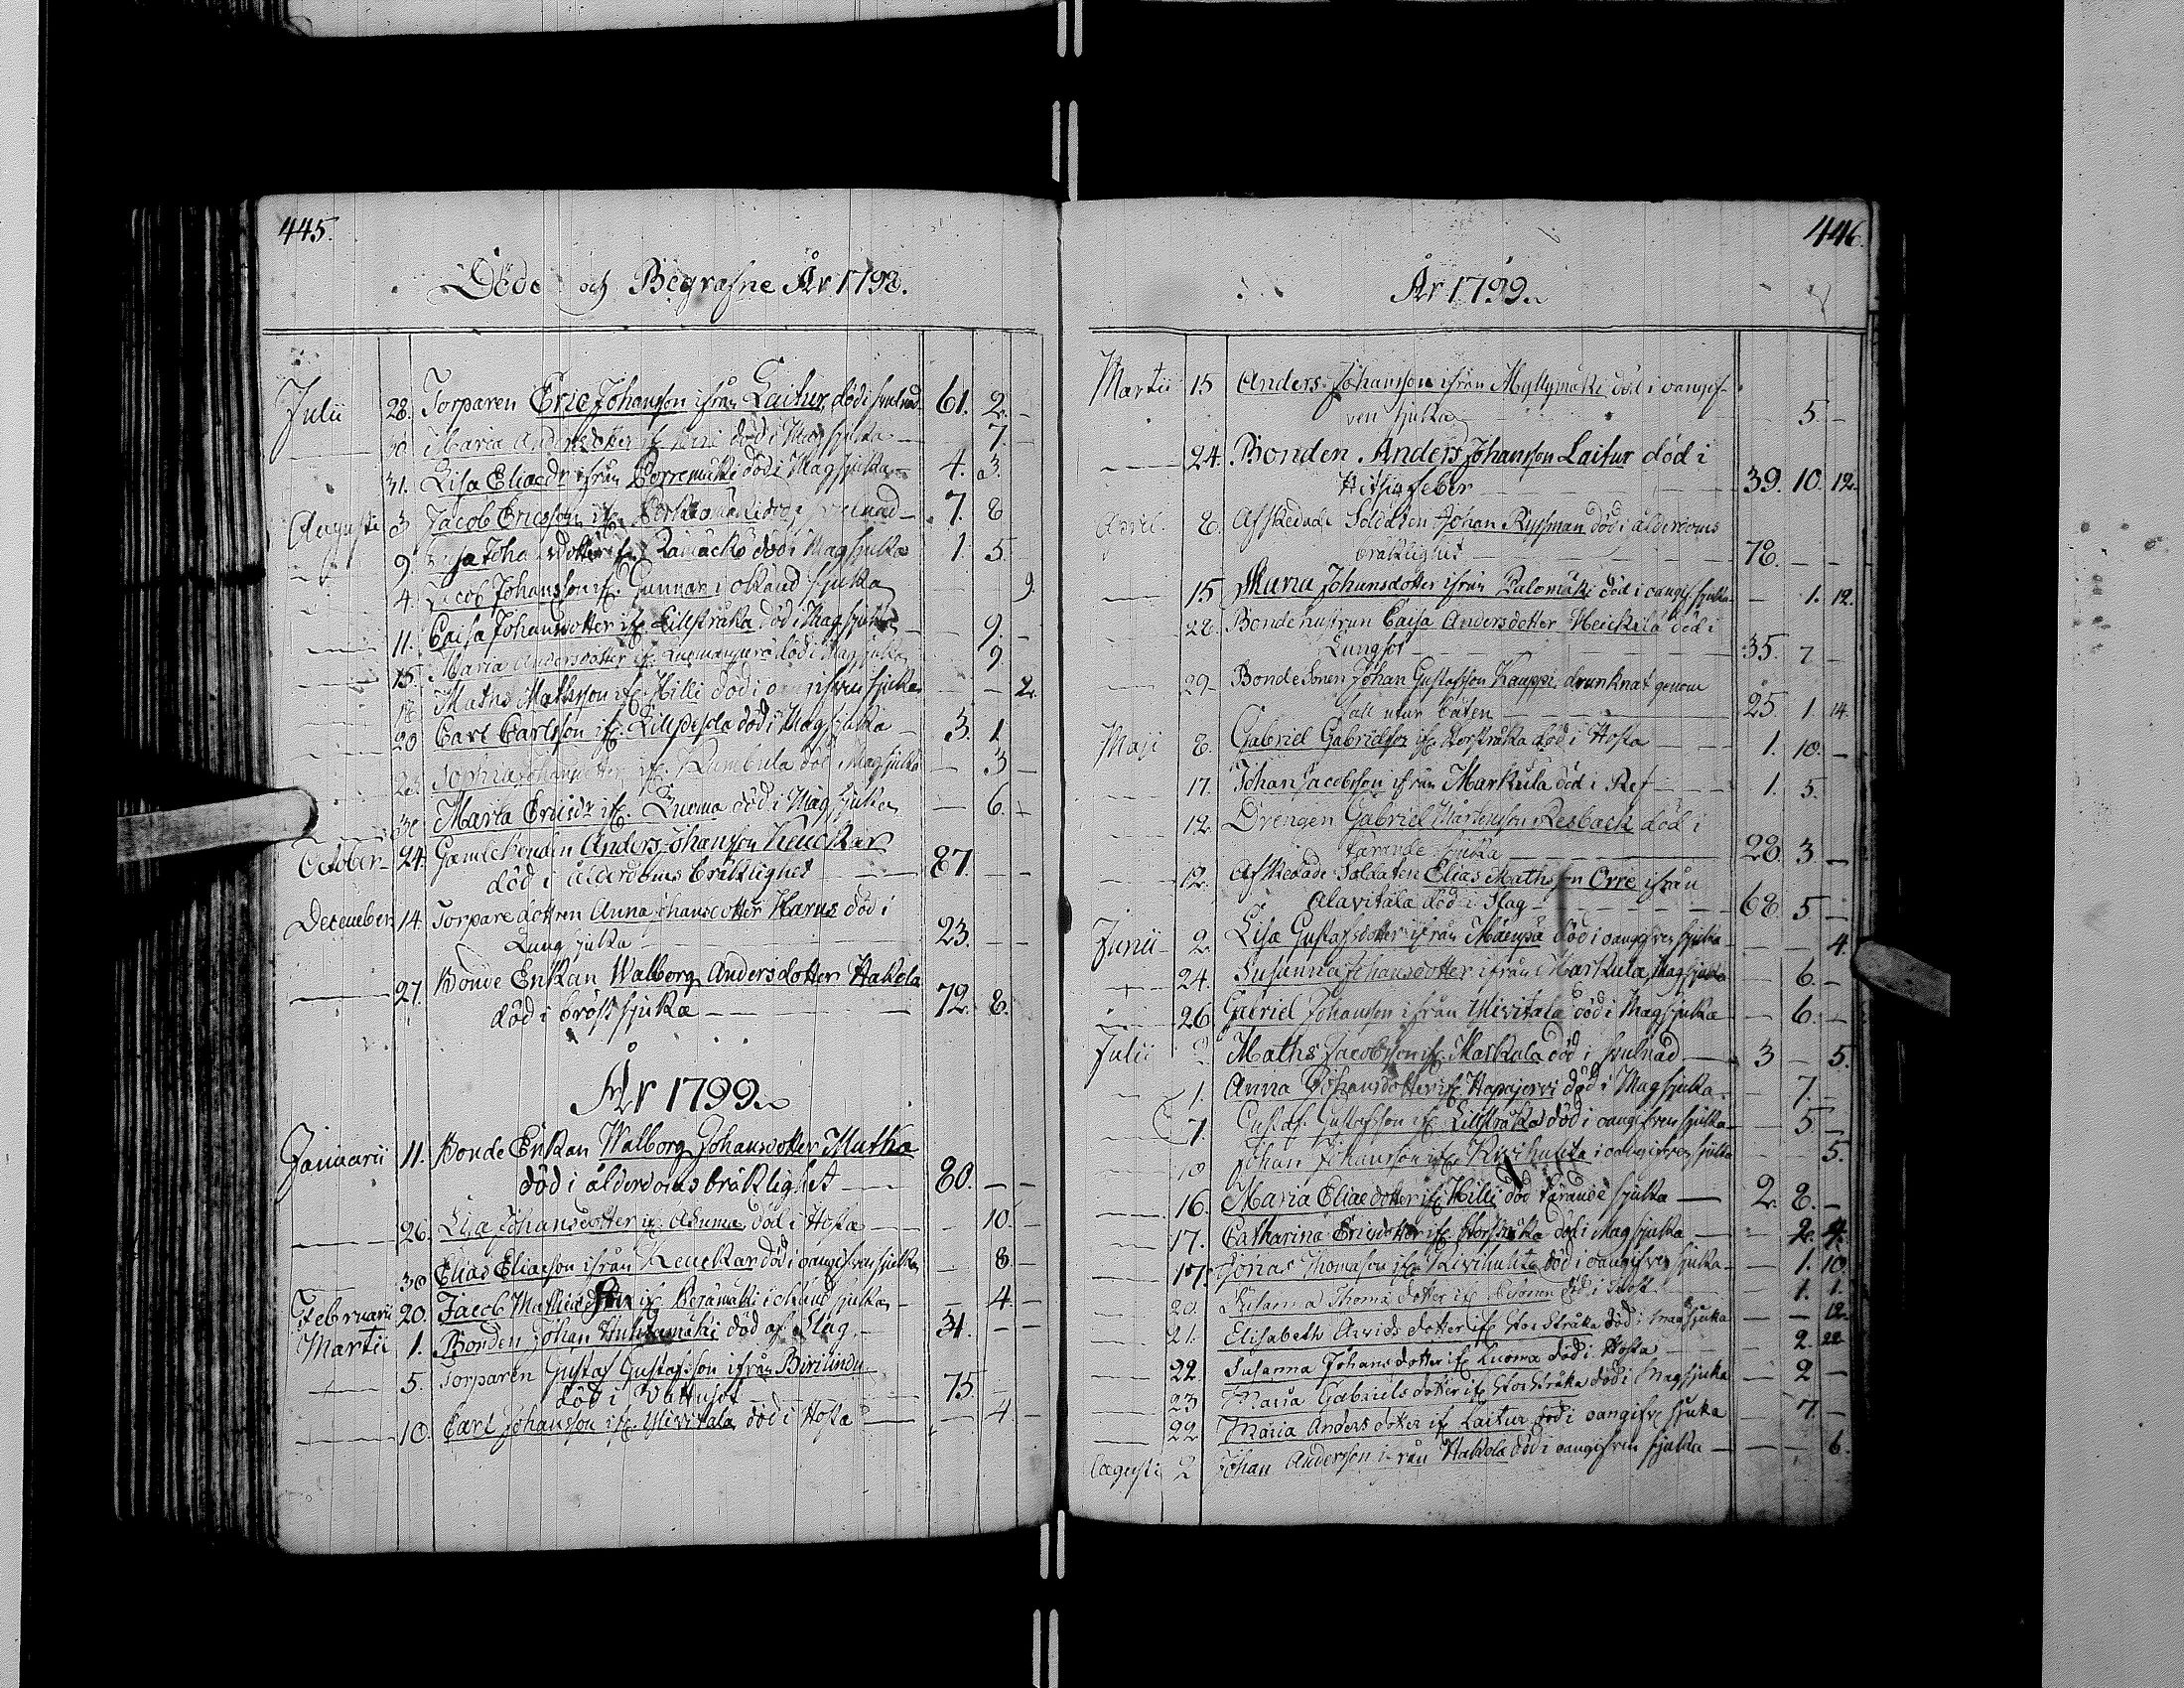 445.
Döde och Begrafne År 1798.
Julii 28. Torparen Eric Johansson ifrån Laitur, död i svulnad 61. 2. -
30. Maria Andersdotter if. död i Magsjuka - 7. -
31. Lisa Eliaedr ifrån Perremäki död i Magsjuka 4. 3.
Augusti 3 Jacob Ericsson if. död i svulnad 7. 8
9. Johansdotter if. död i Magsjuka 1. 5.
4. Jacob Johansson if. Gunnar i okänd sjuka 9.
11. Caisa Johansdotter if. Lillstråka död i Magsjuka - 9. -
15. Maria Andersdotter if. död i Magsjuka 9.
18. Maths Mathsson if. Hilli död i oangifven sjuka - - 2.
20 Carl Carlsson if. död i Magsjuka 3. 1.
23. Sophia Johansdotter if. Rumbula död i Magsjuka - 3 -
30. Maria Ericsdr if. Luoma död i Magsjuka - 6. -
October 24. Gamlebonden Anders Johansson Keuckar
död i ålderdoms bräcklighet 87. - -
December 14. Torpare dottren Anna Johansdotter Harus död i
Lungsjuka 23. - -
27. Bonde Enkan Walborg Andersdotter Hakola
död i bröstsjuka 72. 8.
År 1799.
Januarii 11. Bonde Enkan Walborg Johansdotter Mutka
död i ålderdoms bräklighet 80. - -
26. Lisa Johansdotter if. död i Hosta - 10. -
30 Elias Eliaeson ifrån Keuckar död i oangifven sjuka - 8. -
Februarii 20. Jacob Mathiaeson if. Perämäki i okänd sjuka - 4. -
Martii 1. Bonden Johan Huhtamäki död af Slag. 34. - -
5. Torparen Gustaf Gustafsson ifrån Birilundu
död i Vattusot 75. -
10. Carl Johansson if. Ylivitala död i Hosta - 4 -
446.
År 1799.
Martii 15 Anders Johansson ifrån Myllymäki död i oangif-
ven sjuka - 5. -
24. Bonden Anders Johansson Laitur död i
Hitsig feber 39. 10. 12.
April. 8. Afskedade Soldaten Johan Ryssman död i ålderdoms
bräklighet 78. - -
15 Maria Johansdotter ifrån Palomäki död i oangif. sjuka - 1. 12.
28. Bondehustrun Caisa Andersdotter Heickilä död i
Lungsot 35. 7 -
29 Bonde Sonen Johan Gustafsson Kauppi drunknat genom
fall utur båten 25. 1. 14.
Maji 8. Gabriel Gabrielsson if. Storstråka död i Hosta 1. 10. -
17. Johan Jacobsson ifrån Markula död i Ref 1. 5.
12. Drengen Gabriel Mårtensson Resback död i
tärande sjuka 28. 3. -
12. Afskedade Soldaten Elias Mathsson Orre ifrån
Alavitala död i Slag 68. 5. -
Junii 2. Lisa Gustafsdotter ifrån Mäenpä död i oangifven sjuka - - 4.
24. Susanna Johansdotter ifrån Markula, Magsjuka - 6. -
26. Gabriel Johansson ifrån Ylivitala död i Magsjuka - 6. -
Julii 2 Maths Jacobsson if. Markula död i svulnad 3 - 5.
1. Anna Johansdotter if. Hapajervi död i Magsjuka - 7. -
7. Gustaf Gustafsson if. Lillstråka död i oangifven sjuka - 5 -
10 Johan Johansson if. Kivihuhta i oangifven sjuka - - 5.
16. Maria Eliaedotter if. Hilli död tärande sjuka 2. 8. -
17. Catharina Ericsdotter if. Storstråka död i Magsjuka - 2. 4.
17. Jonas Thomasson if. Kivihuhta död i oangifven sjuka - 1. 10
20. Susanna Thomædotter if. död i Hosta 1. 1.
21. Elisabeth Arvidsdotter if. Storstråka död i Magsjuka - - 12.
22 Susanna Johansdotter if. Luoma död i Hosta 2. 22
23 Maria Gabrielsdotter if. Storstråka död i Magsjuka - 2 -
22 Maria Andersdotter if. Laitur död i oangifv. sjuka 7. -
Augusti 2 Johan Andersson ifrån Hakola död i oangifven sjuka - - 6.